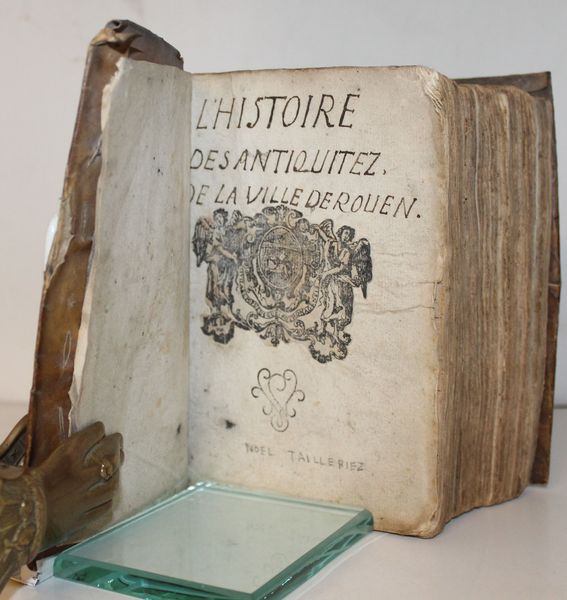 L'HISTOIRE
DES ANTIQUITEZ.
DE LA VILLE DE ROUEN.
NOEL TAILLEPIEZ